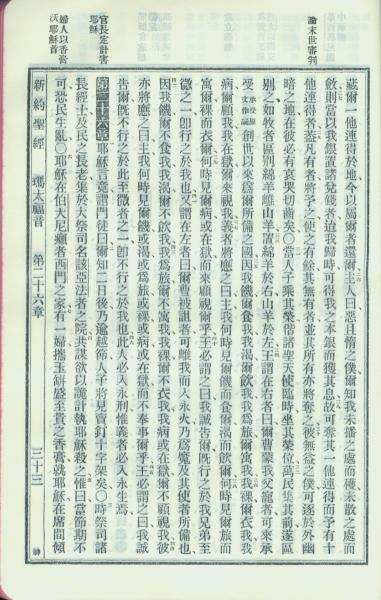 論末世審判
藏爾一他連得於地今以屬爾者還爾主人曰惡且惰之僕爾知我未播之處而穫未散之處而
斂則當以我銀置諸兌錢者迨我歸時可得我之本銀而獲其息故可奪其一他連得而予有十
他連得者蓋凡有者將予之使之有餘其無有者並其所有亦將奪之彼無益之僕可逐於外幽
暗之地在彼必有哀哭切齒矣○當人子乘其榮偕諸聖天使臨時坐其榮位萬民集其前遂區
別之如牧者區別綿羊離山羊置綿羊於右山羊於左王謂在右者曰爾曹蒙我父寵者可來承
受承受原文作嗣創世以來爲爾所備之國因我饑爾食我我渴爾飮我我爲旅爾寓我我裸爾衣我我
病爾顧我我在獄爾來視我義者將應之曰主我何時見爾饑而食爾渴而飮爾何時見爾旅而
寓爾裸而衣爾何時見爾病或在獄而來顧視爾乎王必謂之曰我誠告爾旣行之於我兄弟至
微之一卽行之於我也又謂在左者曰爾曹被詛者可離我而入永火乃爲魔及其使者所備也
因我饑爾不食我我渴爾不飮我我爲旅爾不寓我我裸爾不衣我我病或在獄爾不顧視我彼
亦將應之曰主我何時見爾饑或渴或爲旅或裸或病或在獄而不奉事爾乎王必謂之曰我誠
告爾旣不行之於此至微者之一卽不行之於我也此人必入永刑惟義者必入永生焉
官長定計害
耶穌
第二十六章 耶穌言竟謂門徒曰爾知二日後乃逾越節人子將見賣釘十字架矣○時祭司諸
長經士及民之長老集於大祭司名該亞法者之院共謀欲以詭計執耶穌殺之惟曰當節期不
婦人以香膏
沃耶穌首
可恐民生亂○耶穌在伯大尼癩者西門之家有一婦攜玉缾盛至貴之香膏就耶穌在席間傾
新約聖經 瑪太福音 第二十六章 三十三 神